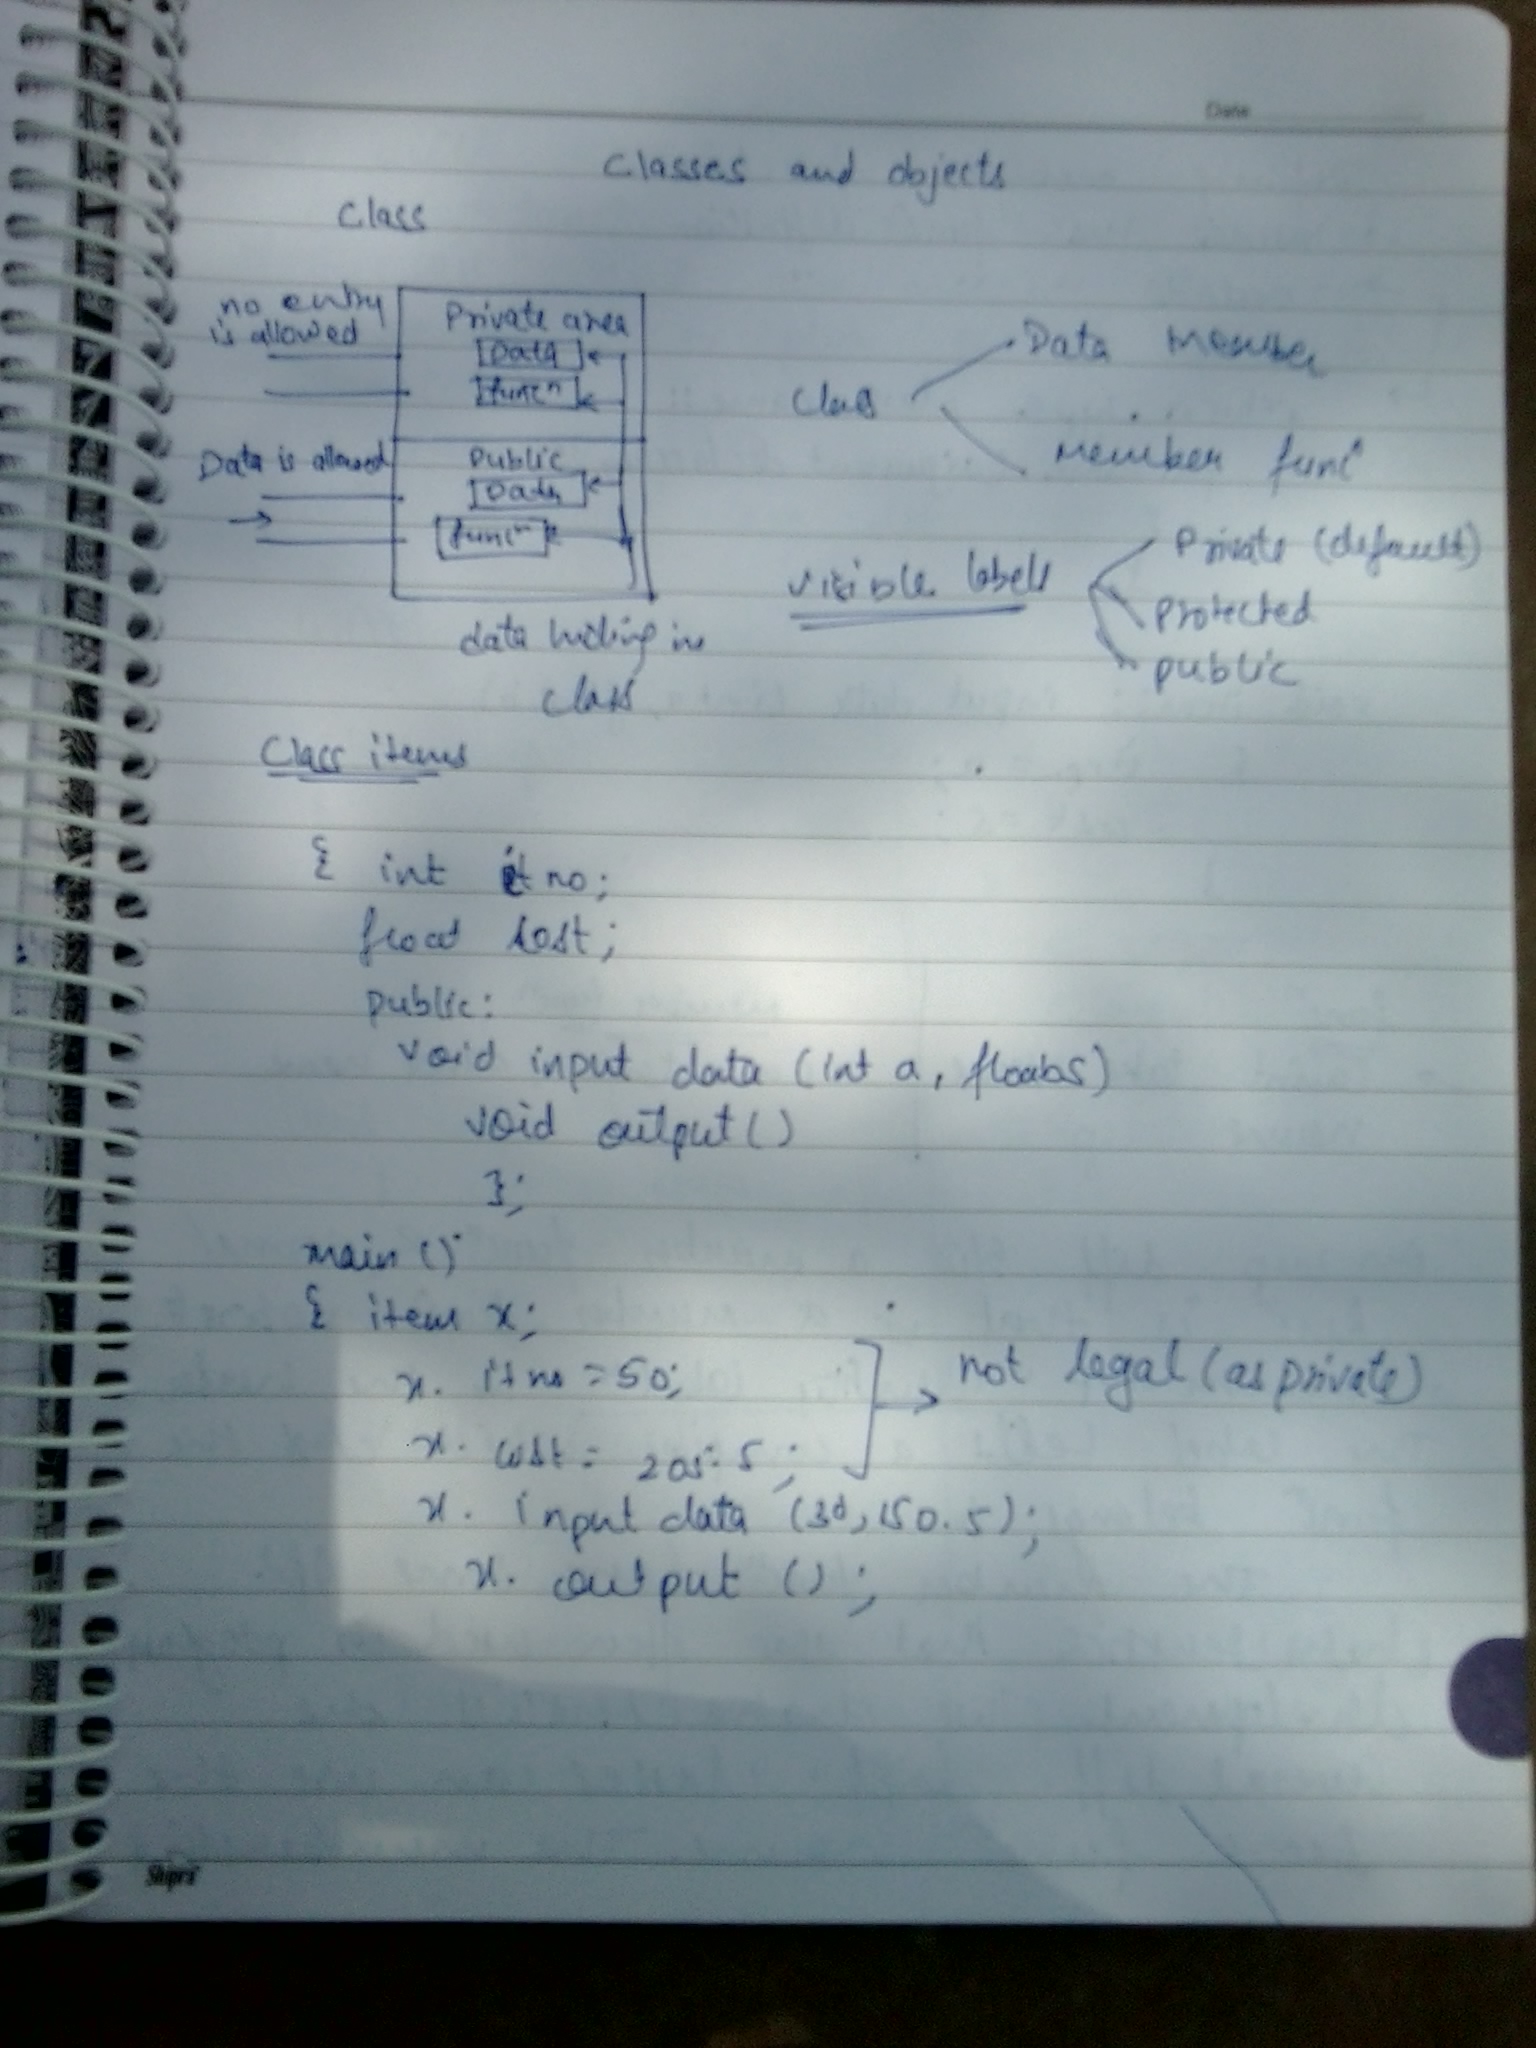 Date
Classes and objects
Class
no entry
is allowed
Private area
Data
funcⁿ
Data is allowed
Public
Data
funcⁿ
data hiding in
class
Class
Data Member
Member funcⁿ
visible labels
Private (default)
Protected
public
Class items
{ int itno;
float cost;
public:
void input data (int a, float b)
void output()
};
main ()
{ item x;
x. itno = 50;
x. cost = 205.5;
not legal (as private)
x. input data (30, 150.5);
x. output ();
Shipra